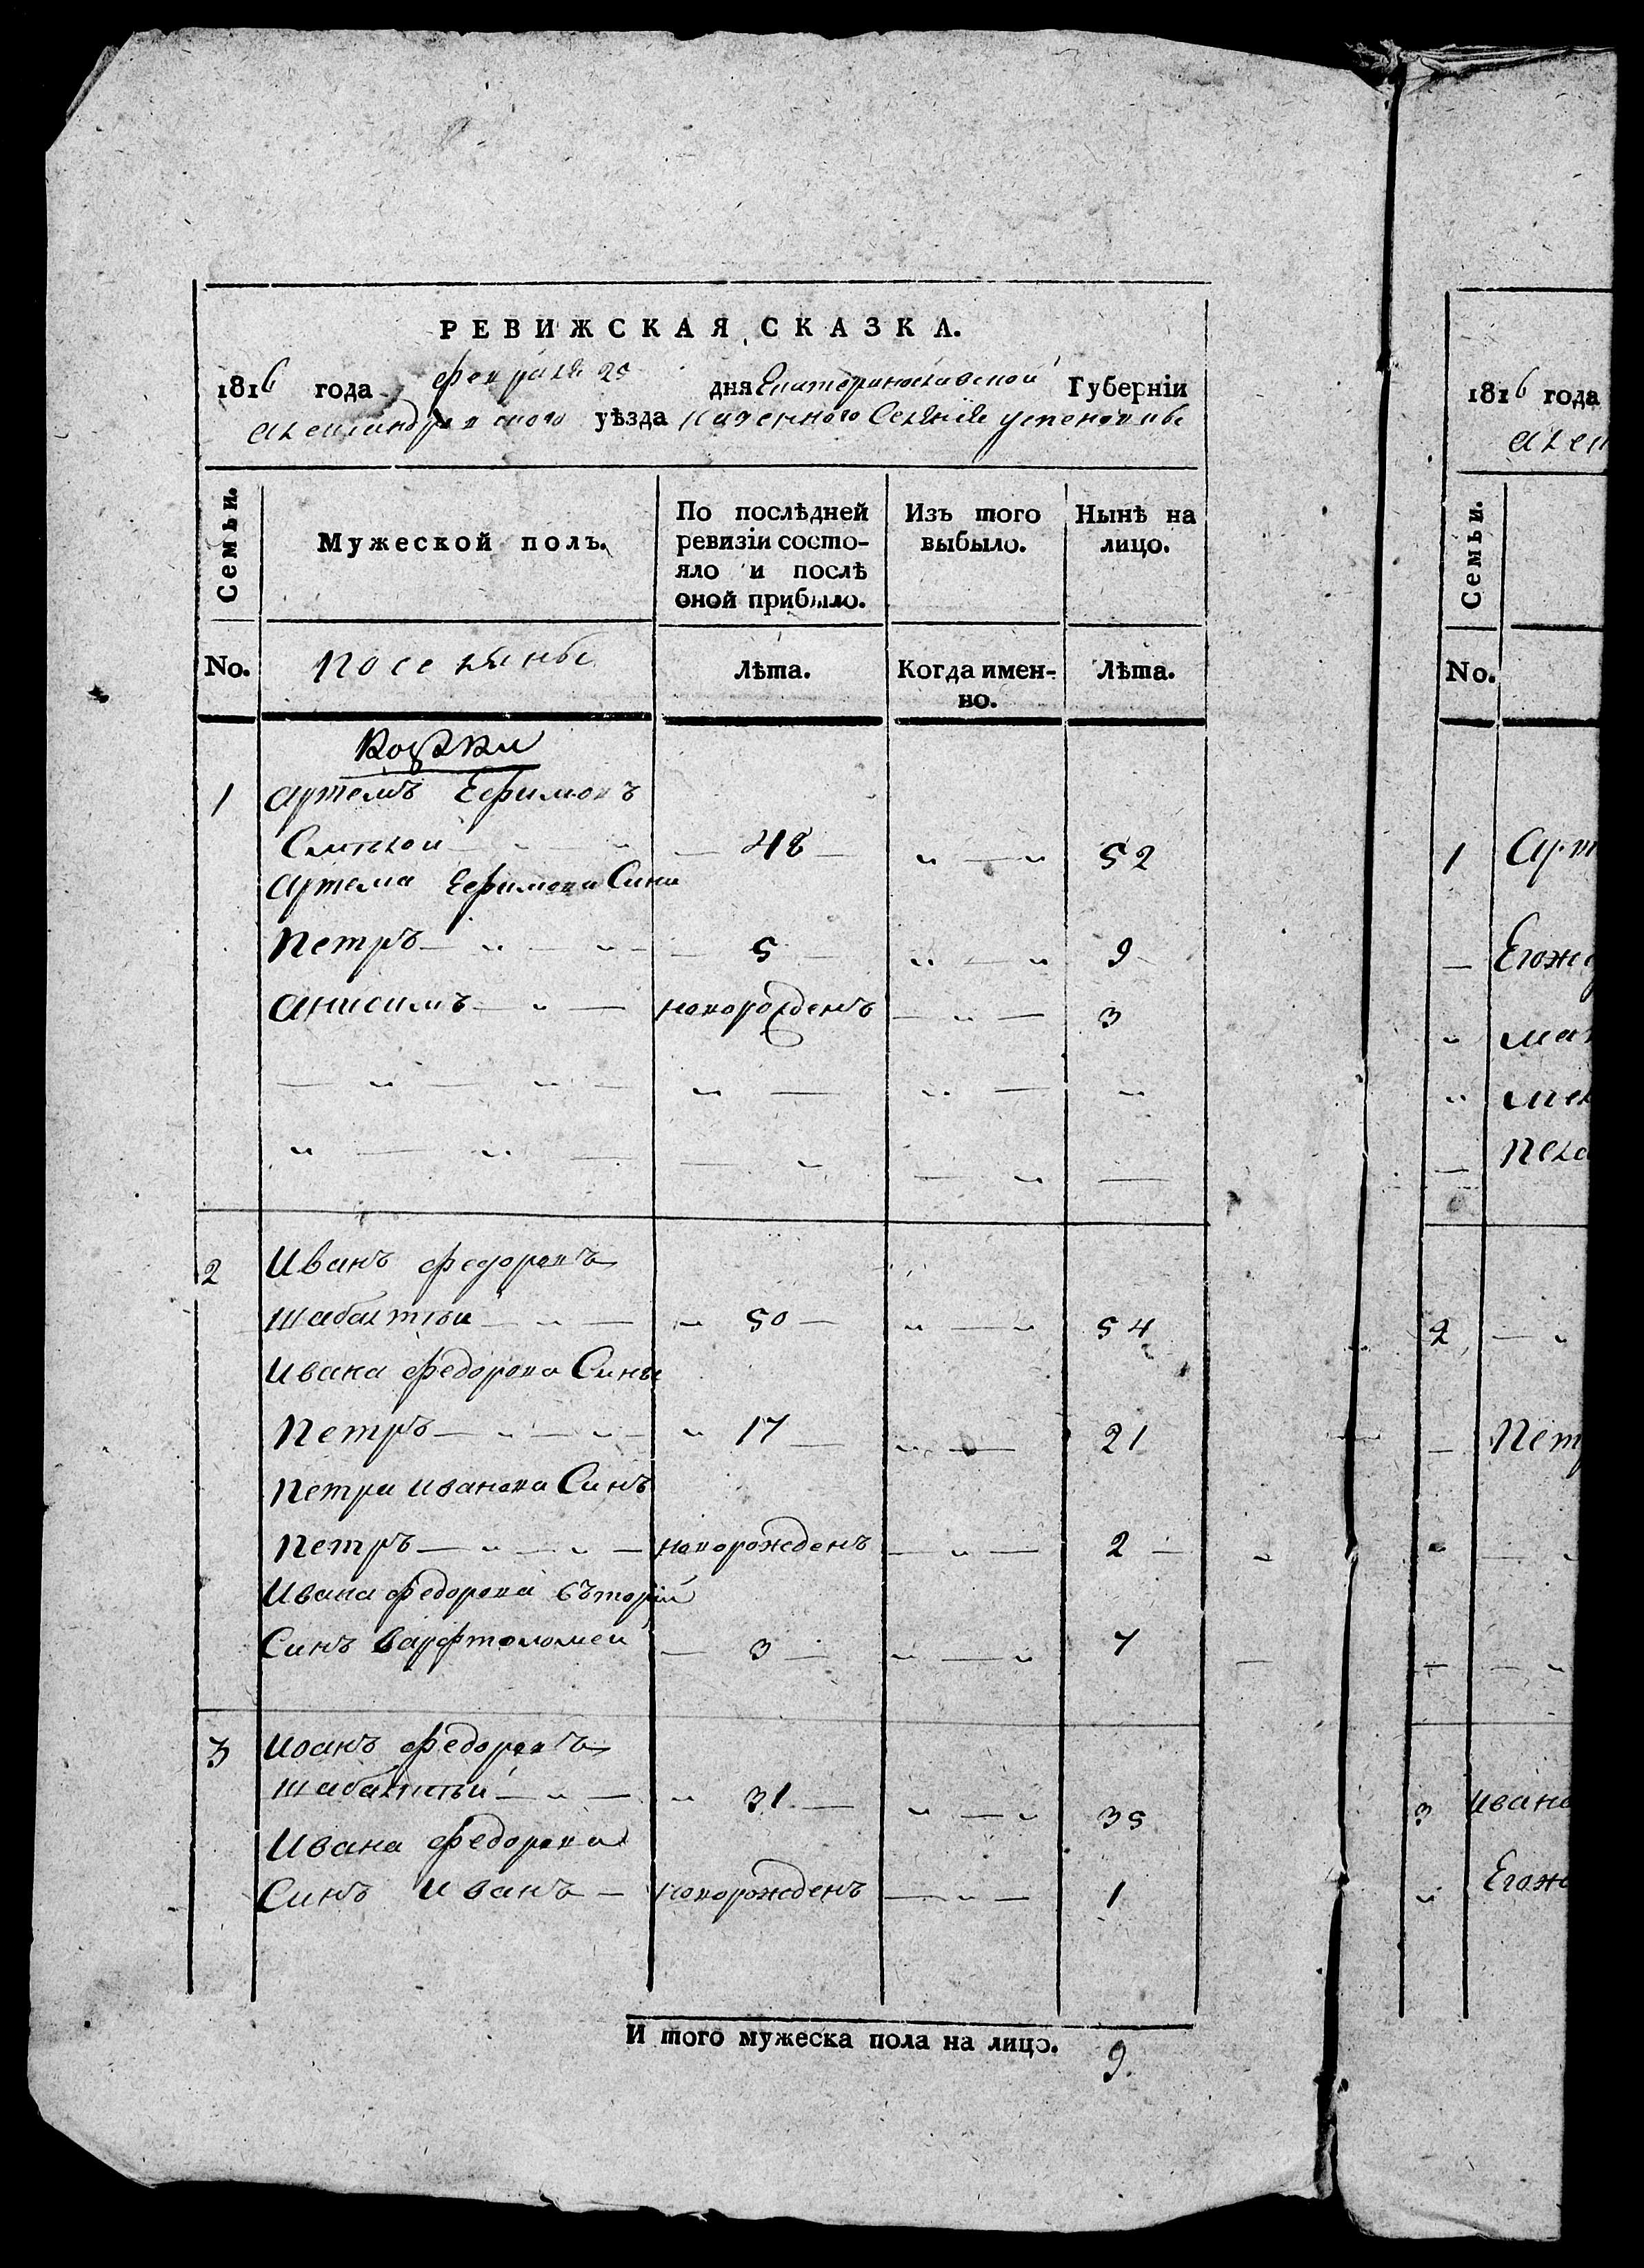 РЕВИЖСКАЯ СКАЗКА.
1816 года февраля 25 дня Екатеринославской Губерніи
александровского уѣзда казенного Селенія успеновки
Семьи.
Мужеской полъ.
По послѣдней ревизіи состо-
яло и послѣ
оной прибыло.
Изъ того
выбыло.
Нынѣ на
лицо.
No.
Поселяне
Лѣта.
Когда имен-
но.
Лѣта.
1 артемъ Ефимовъ
48 " — " 52
артема Ефимова Сини
Петръ — " — " — 5 " — " 9
анисимъ — " — новорожденъ — " — 3
2 Иванъ федоровъ
— " — " 50 — " — " 54
Ивана федорова Сины
Петръ — " — " — " 17 — " — 21
Петра Иванова Синъ
Петръ — " — " — новорожденъ — " — 2 —
Ивана федорова вторій
Синъ варфтоломей — 3 — " — " 7
3 Иванъ федоровъ
— " — " 31 — " — " 35
Ивана федорова
Синъ Иванъ — новорожденъ — " — 1
И того мужеска пола на лицо. 9.
1816 года
Семьи.
No.
1
2
3